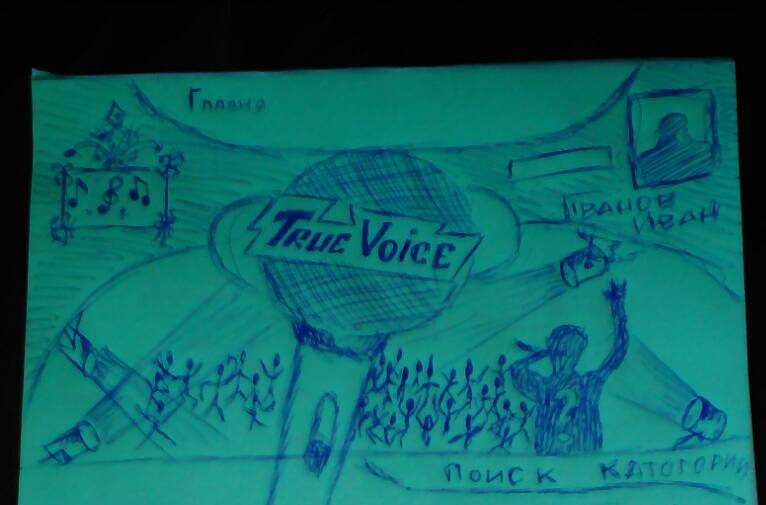 Главня
True Voice
Иванов
Иван
Поиск Катогории